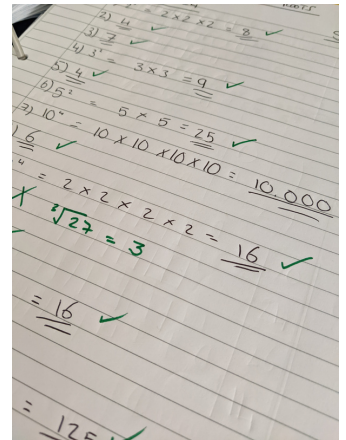 2) = 2 x 2 x 2 = 8 ✓
3) 7 ✓
4) 3² = 3 x 3 = 9 ✓
5) 4 ✓
6) 5² = 5 x 5 = 25 ✓
7) 10⁴ = 10 x 10 x 10 x 10 = 10.000
) 6 ✓
⁴ = 2 x 2 x 2 x 2 = 16 ✓
X √27 = 3
= 16 ✓
= 125 ✓